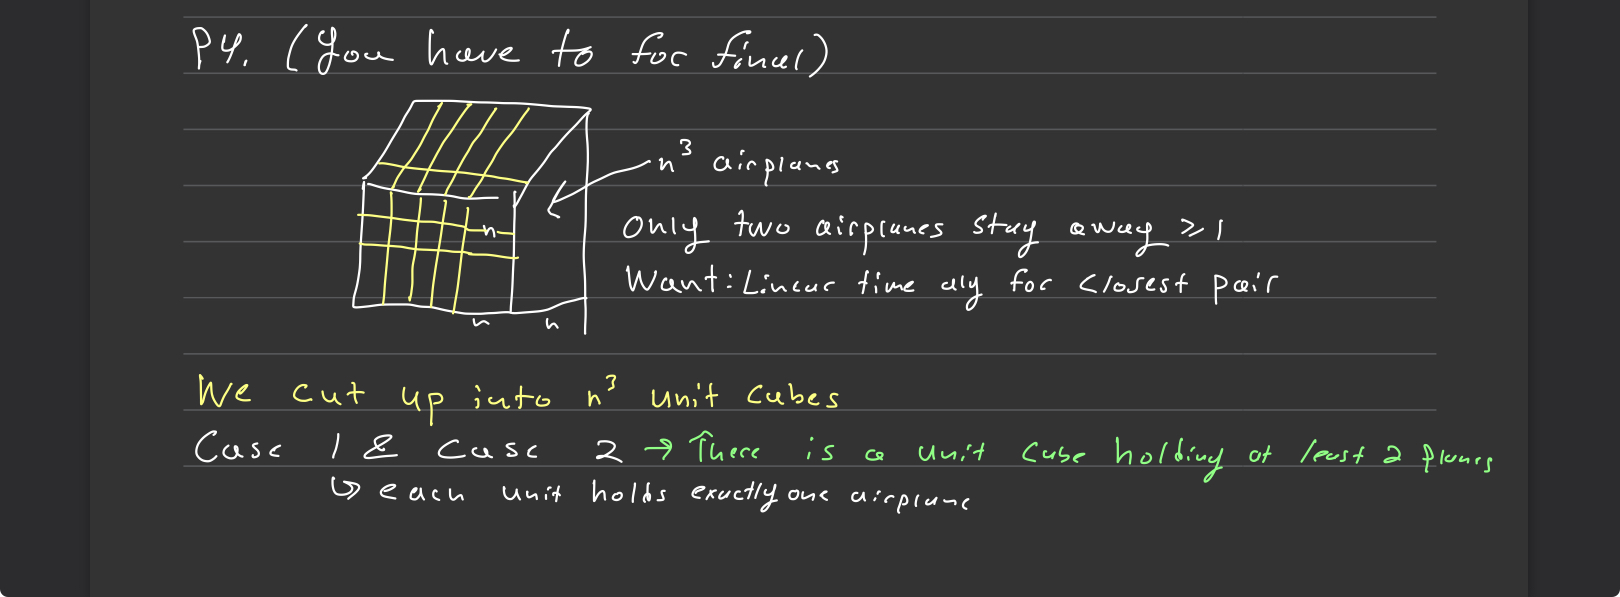 P4. (You have to for final)
n³ airplanes
n
Only two airplanes stay away ≥ 1
Want: Linear time alg for closest pair
n n
We cut up into n³ unit cubes
Case 1 & Case 2 → There is a unit cube holding at least 2 planes
↳ each unit holds exactly one airplane